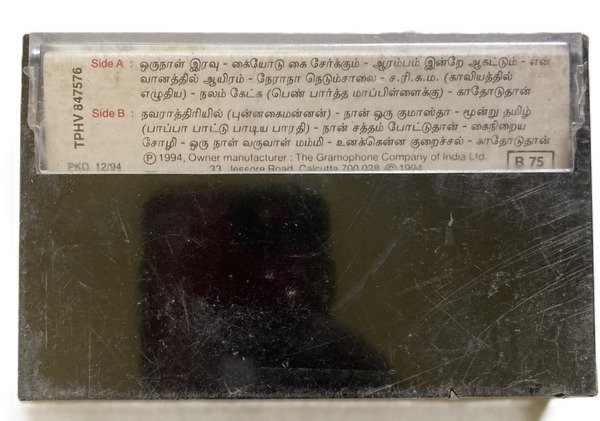 TPHV 847576
Side A : ஒருநாள் இரவு - கையோடு கை சேர்க்கும் - ஆரம்பம் இன்றே ஆகட்டும் - என்
வானத்தில் ஆயிரம் - நேரானா நெடுஞ்சாலை - ச.ரி.க.ம. (காவியத்தில்
எழுதிய) - நலம் கேட்க (பெண் பார்த்த மாப்பிள்ளைக்கு) - காதோடுதான்
Side B : நவராத்திரியில் (புன்னகைமன்னன்) - நான் ஒரு குமாஸ்தா - மூன்று தமிழ்
(பாப்பா பாட்டு பாடிய பாரதி) - நான் சத்தம் போட்டுதான் - கைநிறைய
சோழி - ஒரு நாள் வருவாள் மம்மி - உனக்கென்ன குறைச்சல் - காதோடுதான்
Ⓟ 1994, Owner manufacturer : The Gramophone Company of India Ltd.
PKD. 12/94 33, Jessore Road, Calcutta 700 028. © 1994
B 75